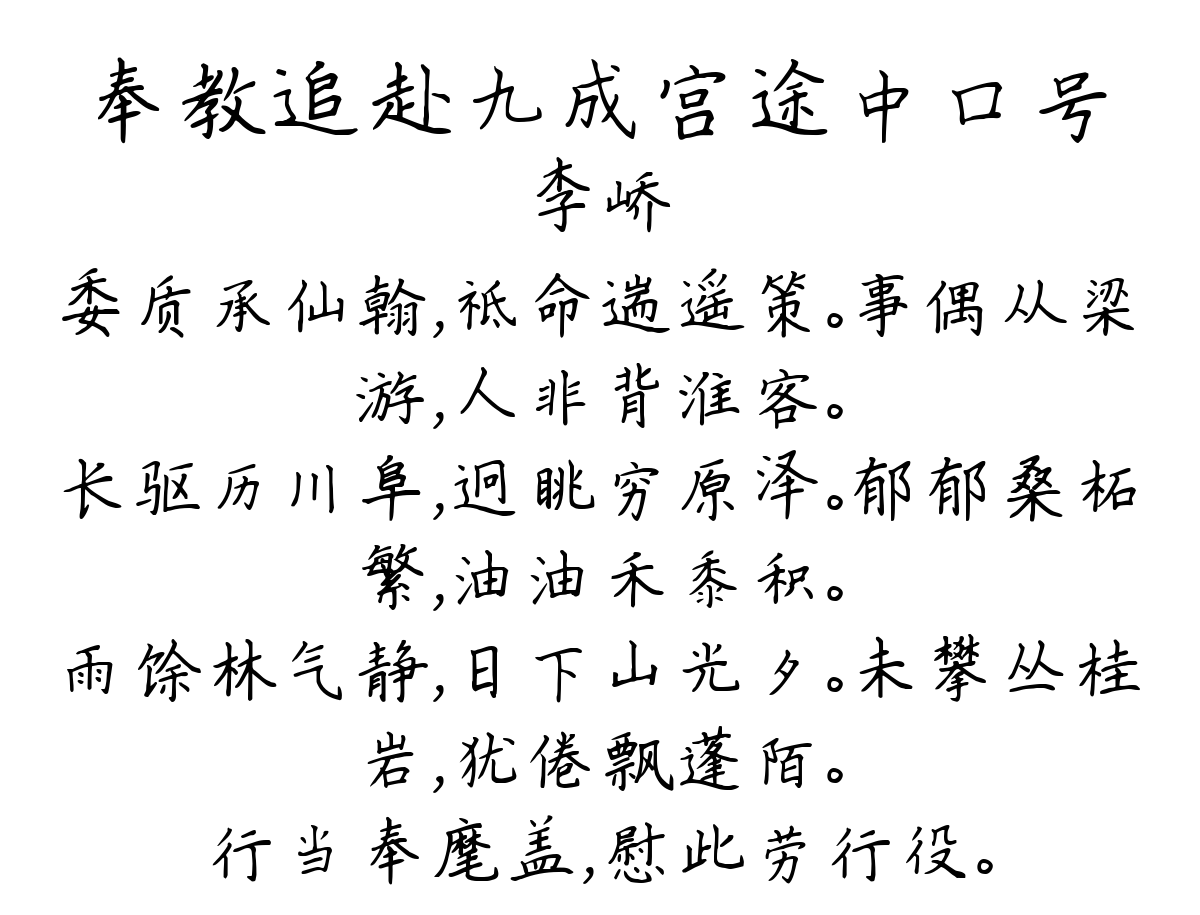 奉教追赴九成宫途中口号
李峤
委质承仙翰,祗命遄遥策。事偶从梁
游,人非背淮客。
长驱历川阜,迥眺穷原泽。郁郁桑柘
繁,油油禾黍积。
雨馀林气静,日下山光夕。未攀丛桂
岩,犹倦飘蓬陌。
行当奉麾盖,慰此劳行役。